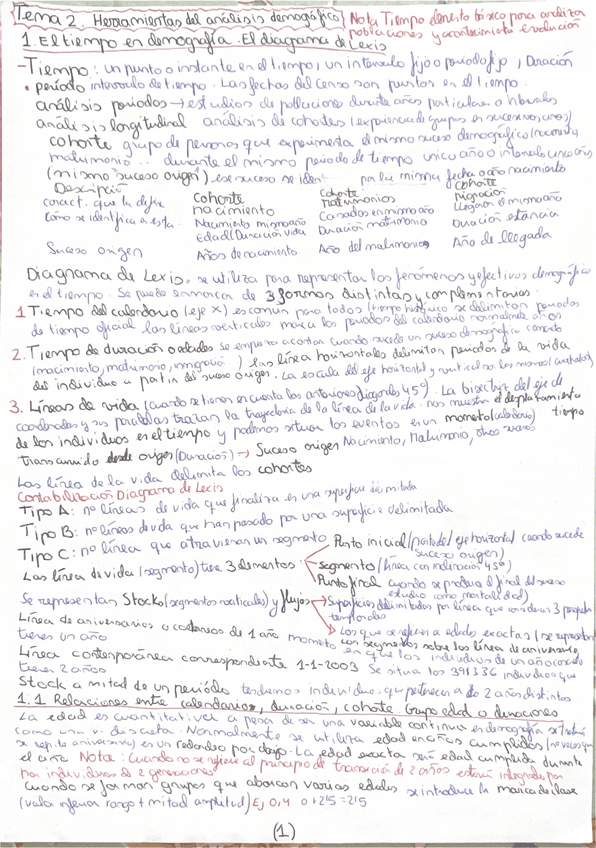 Tema 2. Herramientas del análisis demográfico Nota Tiempo elemento básico para analizar
poblaciones y acontecimiento evolución
1. El tiempo en demografía. El diagrama de Lexis
- Tiempo: un punto o instante en el tiempo, un intervalo fijo o periodo fijo, Duración
• período intervalo de tiempo. Las fechas del censo son puntos en el tiempo.
análisis periodos → estudios de poblaciones durante años particulares o intervalos
análisis longitudinal análisis de cohortes (experiencia de grupos en sucesivos años)
cohorte grupo de personas que experimenta el mismo suceso demográfico (nacimiento,
matrimonio... durante el mismo periodo de tiempo único año o intervalo
(mismo suceso origen) ese suceso se iden por la misma fecha o año nacimiento
Descripción Cohorte nacimiento Cohorte matrimonios Cohorte migración
caract. que la define Nacimiento mismo año Casados en mismo año Llegaron el mismo año
como se identifica a esta. Edad (Duración vida Duración matrimonio Duración estancia
Suceso origen Años de nacimiento Año del matrimonio Año de llegada
Diagrama de Lexis: se utiliza para representar los fenómenos y efectivos demográfico
en el tiempo. Se puede enmarcar de 3 formas distintas y complementarias:
1 Tiempo del calendario (eje x) es común para todos (tiempo histórico se delimitan periodos
de tiempo oficial las líneas verticales marca los períodos del calendario normalmente años
2. Tiempo de duración o edades se empieza a contar cuando sucede un suceso demográfico
(nacimiento, matrimonio, inmigración) las línea horizontales delimitan periodos de la vida
del individuo a partir del suceso origen. La escala del eje horizontal y vertical son las mismas (cuadrados)
3. Líneas de vida (cuando se tienen en cuenta los anteriores diagonales 45°). La bisectriz del eje de
coordenadas y sus paralelas trazan la trayectoria de la línea de la vida. nos muestra el desplazamiento
de los individuos en el tiempo y podemos situar los eventos en un momento (calendario) tiempo
transcurrido desde origen (Duración) → Suceso origen Nacimiento, Matrimonio, otros sucesos
Las línea de la vida delimita los cohortes
Contabilización Diagrama de Lexis
Tipo A: nº líneas de vida que finaliza en una superficie delimitada
Tipo B: nº líneas de vida que han pasado por una superficie delimitada
Tipo C: nº línea que atraviesan un segmento
Las línea de vida (segmento) tiene 3 elementos: Punto inicial (parte del eje horizontal cuando sucede
suceso origen)
Segmento (línea con inclinación 45°)
Punto final cuando se produce el final del suceso
estudio como mortalidad)
Se representan Stocks (segmentos verticales) y flujos → Superficies delimitadas por línea que consideran 3
temporales
→ Los que se refieren a edades exactas (se representan
con segmentos sobre las línea de aniversario
Línea de aniversarios o cadáveres de 1 año momento en que los individuos de un año
tienen un año
Línea contemporánea correspondiente 1-1-2003 Se situa los 391336 individuos que
tienen 2 años
Stock a mitad de un período tendremos individuos que pertenecen a de 2 años distintos
1.1 Relaciones entre calendarios, duración, cohorte Grupo edad o duraciones
La edad es cuantitativa a pesar de ser una variable continua en demografía se
como una v. discreta. Normalmente se utiliza edad en años cumplidos (no veces que
se repite aniversario) es un redondeo por debajo. La edad exacta será edad cumplida durante
el año Nota: Cuando no se refiere al principio de transición de 2 años estará integrado por
por individuos de 2 generaciones
Cuando se forman grupos que abarcan varias edades se introduce la marca de clase
(valor inferior rango + mitad amplitud) Ej 0,4 0+2'5=2'5
(1)